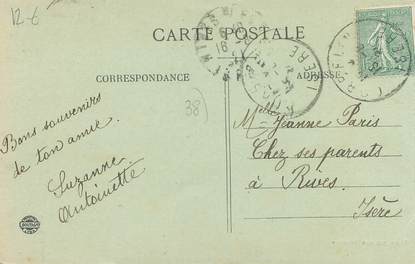 12-6
CARTE POSTALE
CORRESPONDANCE
ADRESSE
38
Bons souvenirs
de ton amie.
Suzanne
Antoinette
Melle Jeanne Paris
Chez ses parents
à Rives.
Isère